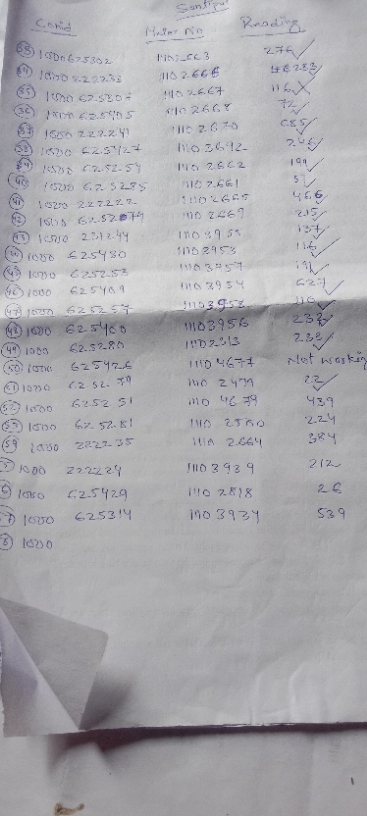 Conid Meter No Reading
(33) 1000625302 1102663 276 ✓
(34) 1000222233 1102666 48283 ✓
(35) 1000 625303 1102667 116 ✓
(36) 1000 625405 1102668 72 ✓
(37) 1000 222241 1102670 685 ✓
(38) 1000 625427 1103692 246 ✓
(39) 1000 625254 1102662 199 ✓
(40) 1000 625285 1102661 ✓
(41) 1000 222222 1102665 466 ✓
(42) 1000 6252079 1102669 215 ✓
(43) 1000 231244 137 ✓
(44) 1000 625430 1103953 116 ✓
(45) 1000 625253 1103457 191 ✓
(46) 1000 625409 1103954 627 ✓
(47) 1000 625257 1103958 110 ✓
(48) 1000 625460 1103956 232 ✓
(49) 1000 625280 238 ✓
(50) 1000 625426 1104677 Not working
(51) 1000 6252 79 1102479 22 ✓
1000 6252 51 110 4679 439
1000 625281 110 2560 224
1000 222235 1102664 384
1000 222224 1103939 212
1000 625429 1102818 26
1000 625314 1103934 539
1000